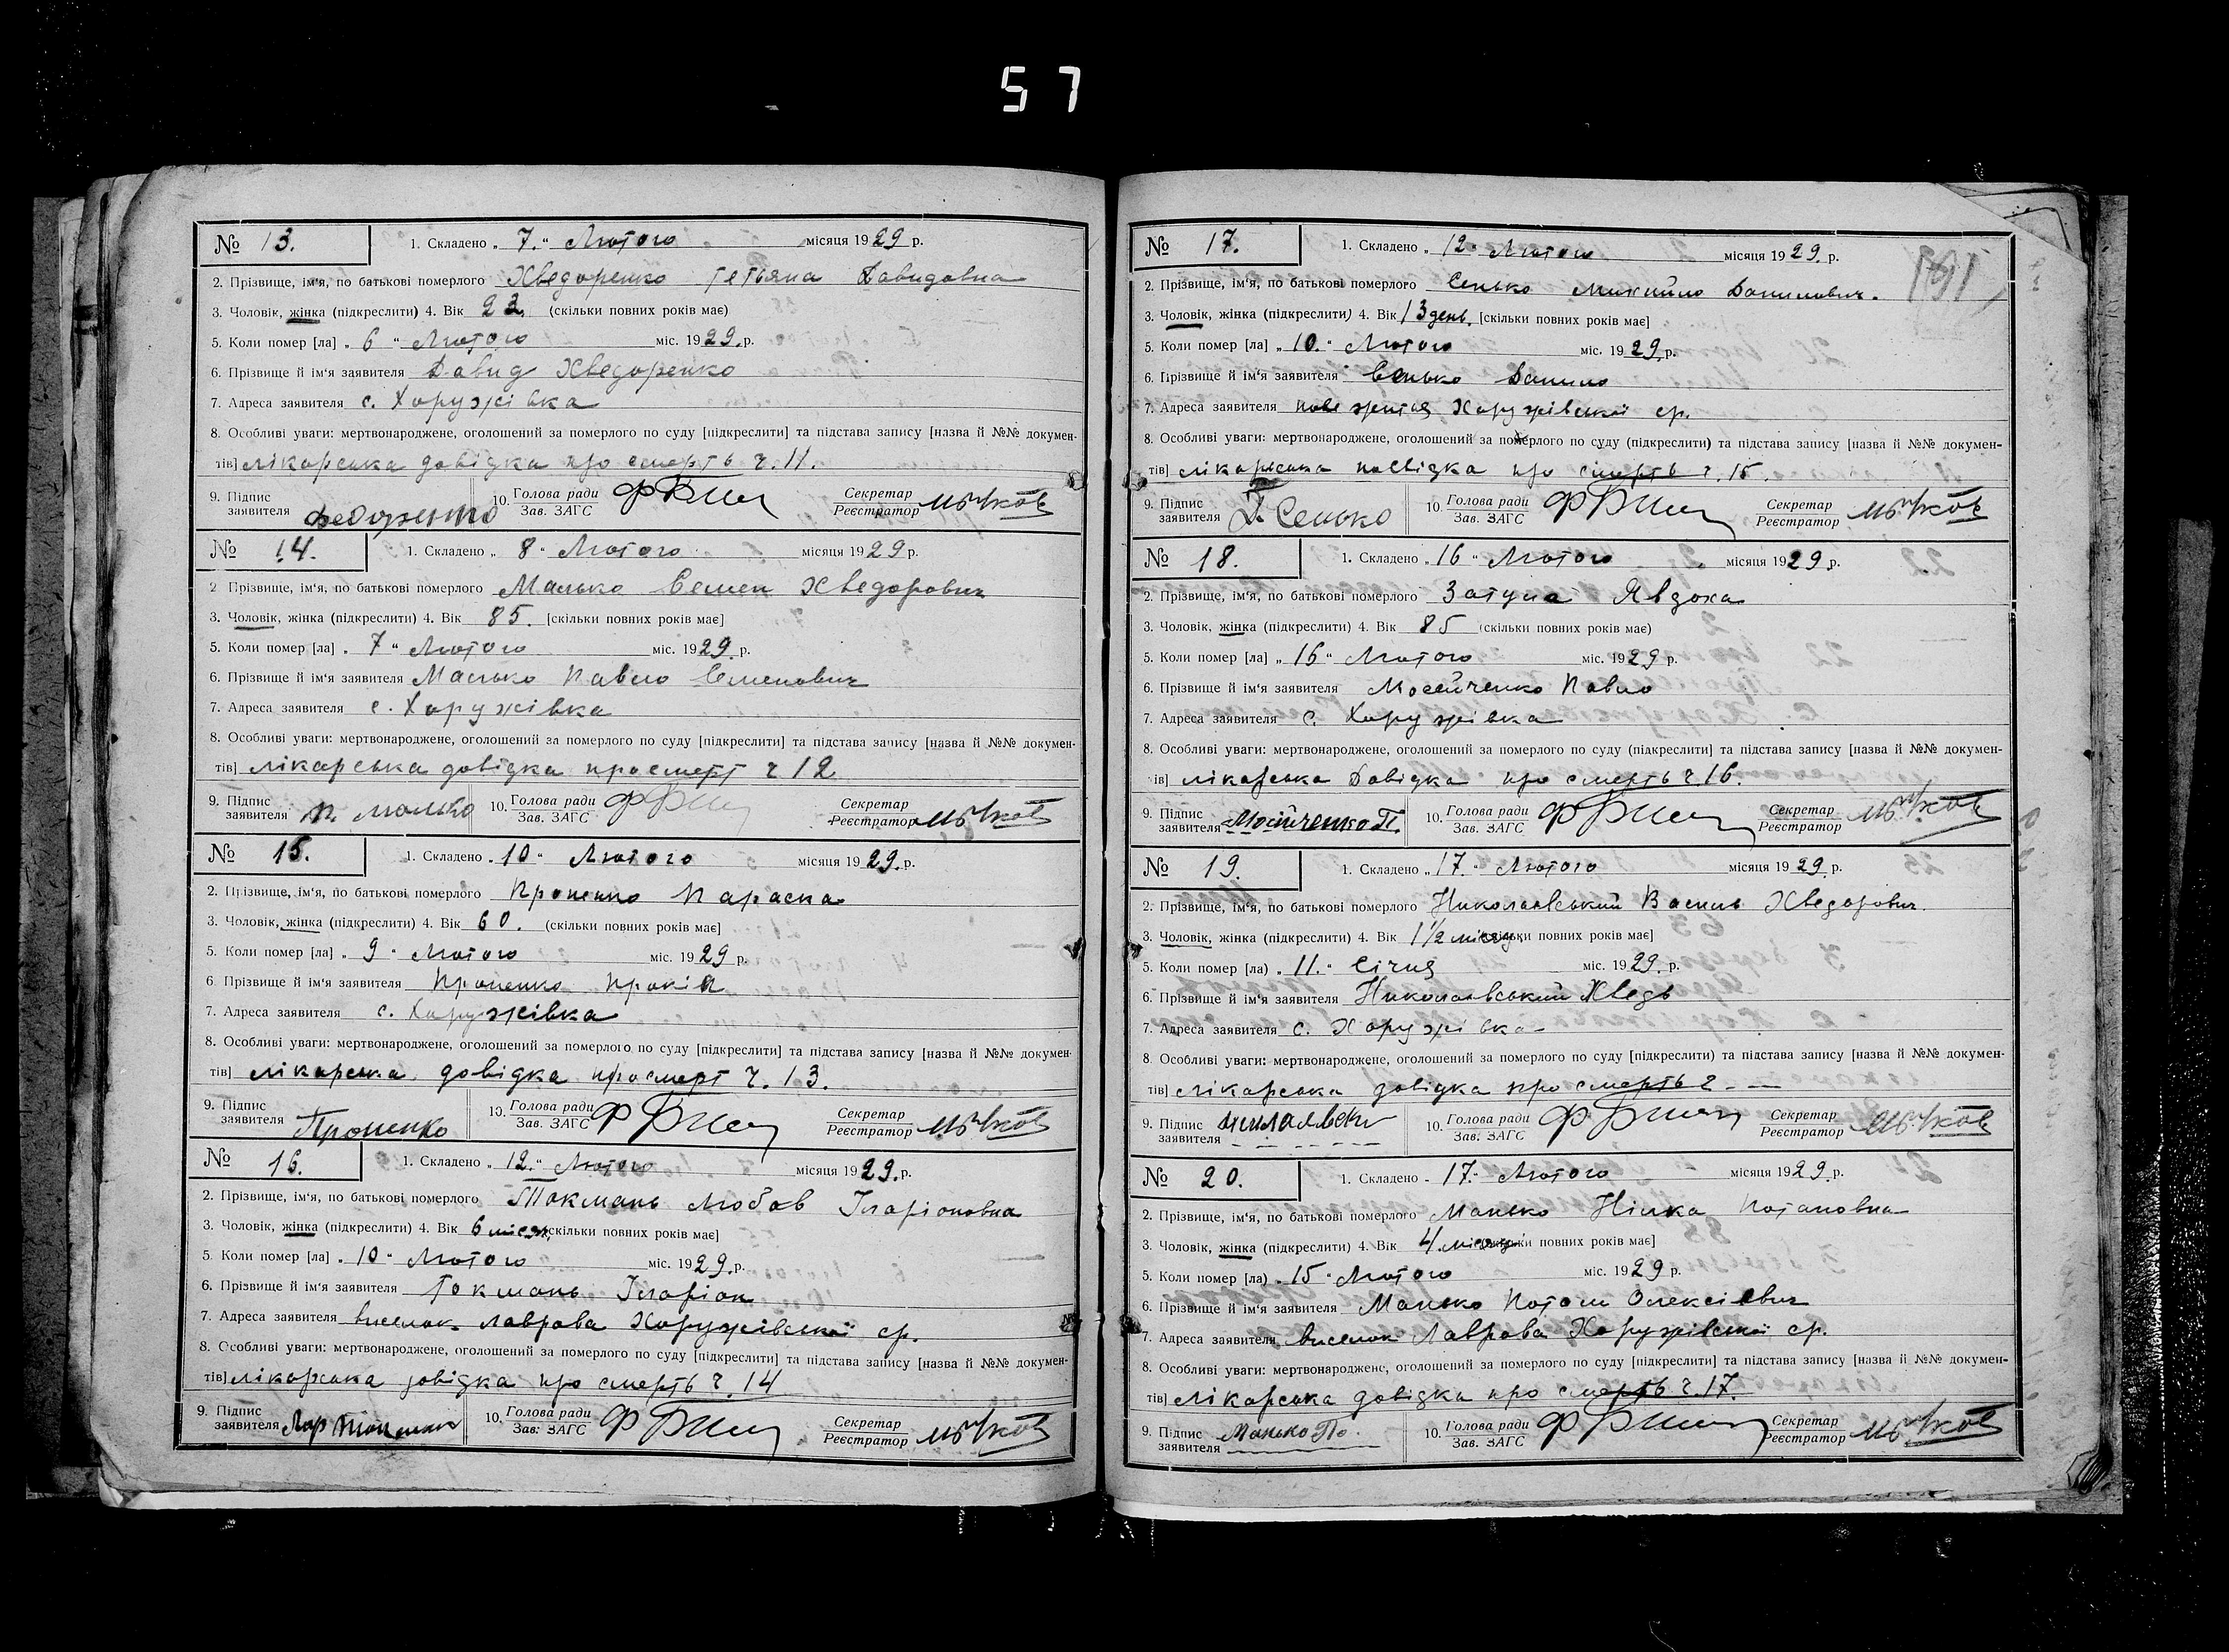 57
№ 13. 1. Складено „ 7. “ Лютого місяця 1929 р.
2. Прізвище, ім'я, по батькові померлого Хведоренко Тетьяна Давидовна
3. Чоловік, жінка (підкреслити) 4. Вік 23 (скільки повних років має)
5. Коли помер [ла] „ 6 “ Лютого міс. 1929. р.
6. Прізвище й ім'я заявителя Давид Хведоренко
7. Адреса заявителя с. Хоружівка
8. Особливі уваги: мертвонароджене, оголошений за померлого по суду [підкреслити] та підстава запису [назва й №№ докумен-
тів] лікарська довідка про смерть ч. 11.
9. Підпис заявителя Федоренко 10. Голова ради Зав. ЗАГС Секретар Реєстратор
№ 14. 1. Складено „ 8 “ Лютого місяця 1929 р.
2 Прізвище, ім'я, по батькові померлого Малько Семен Хведорович
3. Чоловік, жінка (підкреслити) 4. Вік 85. [скільки повних років має]
5. Коли помер [ла] „ 7 “ Лютого міс. 1929. р.
6. Прізвище й ім'я заявителя Малько Павло Семенович
7. Адреса заявителя с. Хоружівка
8. Особливі уваги: мертвонароджене, оголошений за померлого по суду [підкреслити] та підстава запису [назва й №№ докумен-
тів] лікарська довідка про смерт ч 12
9. Підпис заявителя П. Малько 10. Голова ради Зав. ЗАГС Секретар Реєстратор
№ 15. 1. Складено „ 10 “ Лютого місяця 1929. р.
2. Прізвище, ім'я, по батькові померлого Проненко Параска
3. Чоловік, жінка (підкреслити) 4. Вік 60. (скільки повних років має]
5. Коли помер [ла] „ 9 “ Лютого міс. 1929 р.
6. Прізвище й ім'я заявителя Проненко Прокіп
7. Адреса заявителя с. Хоружівка
8. Особливі уваги: мертвонароджене, оголошений за померлого по суду [підкреслити] та підстава запису [назва й №№ докумен-
тів] лікарська довідка про смерт ч. 13.
9. Підпис заявителя Проненко 10. Голова ради Зав. ЗАГС Секретар Реєстратор
№ 16. 1. Складено „ 12. “ Лютого місяця 1929. р.
2. Прізвище, ім'я, по батькові померлого Токмань Любов Іларіоновна
3. Чоловік, жінка (підкреслити) 4. Вік 6 місяц. скільки повних років має]
5. Коли помер [ла] „ 10 “ Лютого міс. 1929. р.
6. Прізвище й ім'я заявителя Токмань Іларіон
7. Адреса заявителя виселок Лаврова Хоружівської ср.
8. Особливі уваги: мертвонароджене, оголошений за померлого по суду [підкреслити] та підстава запису [назва й №№ докумен-
тів] лікарська довідка про смерть ч. 14
9. Підпис заявителя 10. Голова ради Зав. ЗАГС Секретар Реєстратор
№ 17. 1. Складено „ 12 “ Лютого місяця 1929. р.
2. Прізвище, ім'я, по батькові померлого Сенько Михийло Данилович.
3. Чоловік, жінка (підкреслити) 4. Вік 13 день. [скільки повних років має]
5. Коли помер [ла] „ 10. “ Лютого міс. 1929. р.
6. Прізвище й ім'я заявителя Сенько Данило
7. Адреса заявителя Хоружівської ср.
8. Особливі уваги: мертвонароджене, оголошений за померлого по суду (підкреслити) та підстава запису [назва й №№ докумен-
тів] лікарська посвідка про смерть ч. 15.
9. Підпис заявителя Д. Сенько 10. Голова ради Зав. ЗАГС Секретар Реєстратор
№ 18. 1. Складено „ 16 “ Лютого місяця 1929. р.
2. Прізвище, ім'я, по батькові померлого Затула Явдоха
3. Чоловік, жінка (підкреслити) 4. Вік 85 (скільки повних років має)
5. Коли помер [ла] „ 16 “ Лютого міс. 1929 р.
6. Прізвище й ім'я заявителя Мосейченко Павло
7. Адреса заявителя с. Хоружівка
8. Особливі уваги: мертвонароджене, оголошений за померлого по суду (підкреслити] та підстава запису [назва й №№ докумен-
ів] лікарська Довідка про смерть ч. 16.
9. Підпис заявителя Мосійченко П. 10. Голова ради Зав. ЗАГС Секретар Реєстратор
№ 19. 1. Складено „ 17. “ Лютого місяця 1929. р.
2. Прізвище, ім'я, по батькові померлого Николаєвський Василь Хведорович.
3. Чоловік, жінка (підкреслити) 4. Вік 1 1/2 місяц. повних років має]
5. Коли помер [ла) „ 11. “ Січня міс. 1929. р.
6. Прізвище й ім'я заявителя Николаєвський Хведь
7. Адреса заявителя с. Хоружівка
8. Особливі уваги: мертвонароджене, оголошений за померлого по суду [підкреслити) та підстава запису [назва й №№ докумен-
тів] лікарська довідка про смерть ч. —
9. Підпис заявителя 10. Голова ради Зав. ЗАГС Секретар Реєстратор
№ 20. 1. Складено „ 17. “ Лютого місяця 1929. р.
2. Прізвище, ім'я, по батькові померлого Манько Нінка Потаповна
3. Чоловік, жінка (підкреслити) 4. Вік 4. місяці повних років має]
5. Коли помер [ла) „ 15 “ Лютого міс. 1929 р.
6. Прізвище й ім'я заявителя Манько Потап Олексієвич
7. Адреса заявителя виселок Лаврова Хоружівської ср.
8. Особливі уваги: мертвонароджене, оголошений за померлого по суду [підкреслити] та підстава запису [назва й №№ докумен-
тів] лікарська довідка про смерть ч. 17.
9. Підпис заявителя Манько По. 10. Голова ради Зав. ЗАГС Секретар Реєстратор